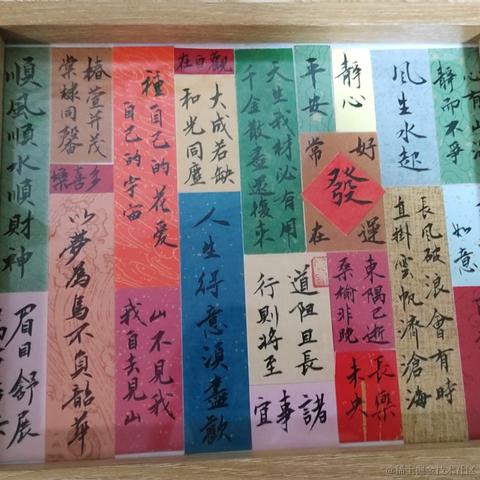 順風順水順財神
眉目舒展
椿萱并茂
棠棣同馨
多喜樂
以夢為馬不負韶華
種自己的花愛
自己的宇宙
山不見我
我自去見山
觀自在
大成若缺
和光同塵
人生得意須盡歡
天生我材必有用
千金散盡還復來
平安
靜心
好運
發
常在
道阻且長
行則將至
諸事宜
風生水起
東隅已逝
桑榆非晚
長樂
未央
長風破浪會有時
直掛雲帆濟滄海
心有山
靜而不爭
如意
@稀土掘金技术社区